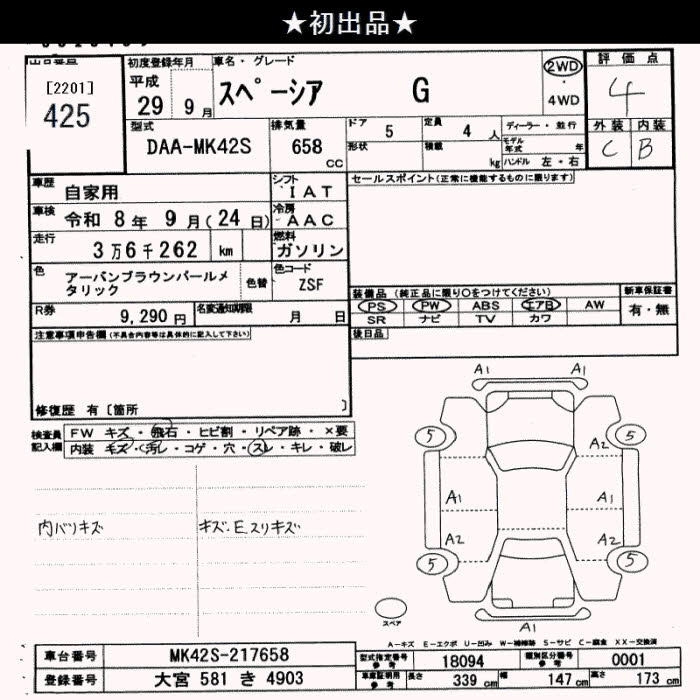 ★初出品★
[2201]
425
初度登録年月
平成
29 9 月
車名・グレード
スペーシア G
2WD
4WD
評価点
4
外装 内装
C B
型式
DAA-MK42S
排気量
658
CC
ドア 5
定員 4 人
ディーラー・並行
形状
積載 kg
モデル年式 年
ハンドル 左・右
車歴
自家用
シフト
IAT
セールスポイント(正常に機能するものに限ります)
車検
令和 8 年 9 月(24 日)
冷房
AAC
走行
3 万 6 千 262 km
燃料
ガソリン
色
アーバンブラウンパールメタリック
色替
色コード
ZSF
装備品(純正品に限り○をつけてください)
新車保証書
PS PW ABS エアB AW
有・無
SR ナビ TV カワ
R券
9,290 円
名変通知期限
月 日
後日品
注意事項申告欄(不具合内容等は具体的に記入して下さい)
修復歴 有〔箇所 〕
検査員記入欄
FW キズ・飛石・ヒビ割・リペア跡・×要
内装 キズ・汚れ・コゲ・穴・スレ・キレ・破レ
内バリキズ
キズ・Eスリキズ
A1 A1
5 5
A2
A1 A1
A2 A2
5 5
A1 A1
スペア
A-キズ E-エクボ U-凹み W-補修跡 S-サビ C-腐食 XX-交換済
車台番号
MK42S-217658
型式指定番号
参考
18094
類別区分番号
参考
0001
登録番号
大宮 581 き 4903
車庫証明用
参考
長さ 339 cm
幅 147 cm
高さ 173 cm